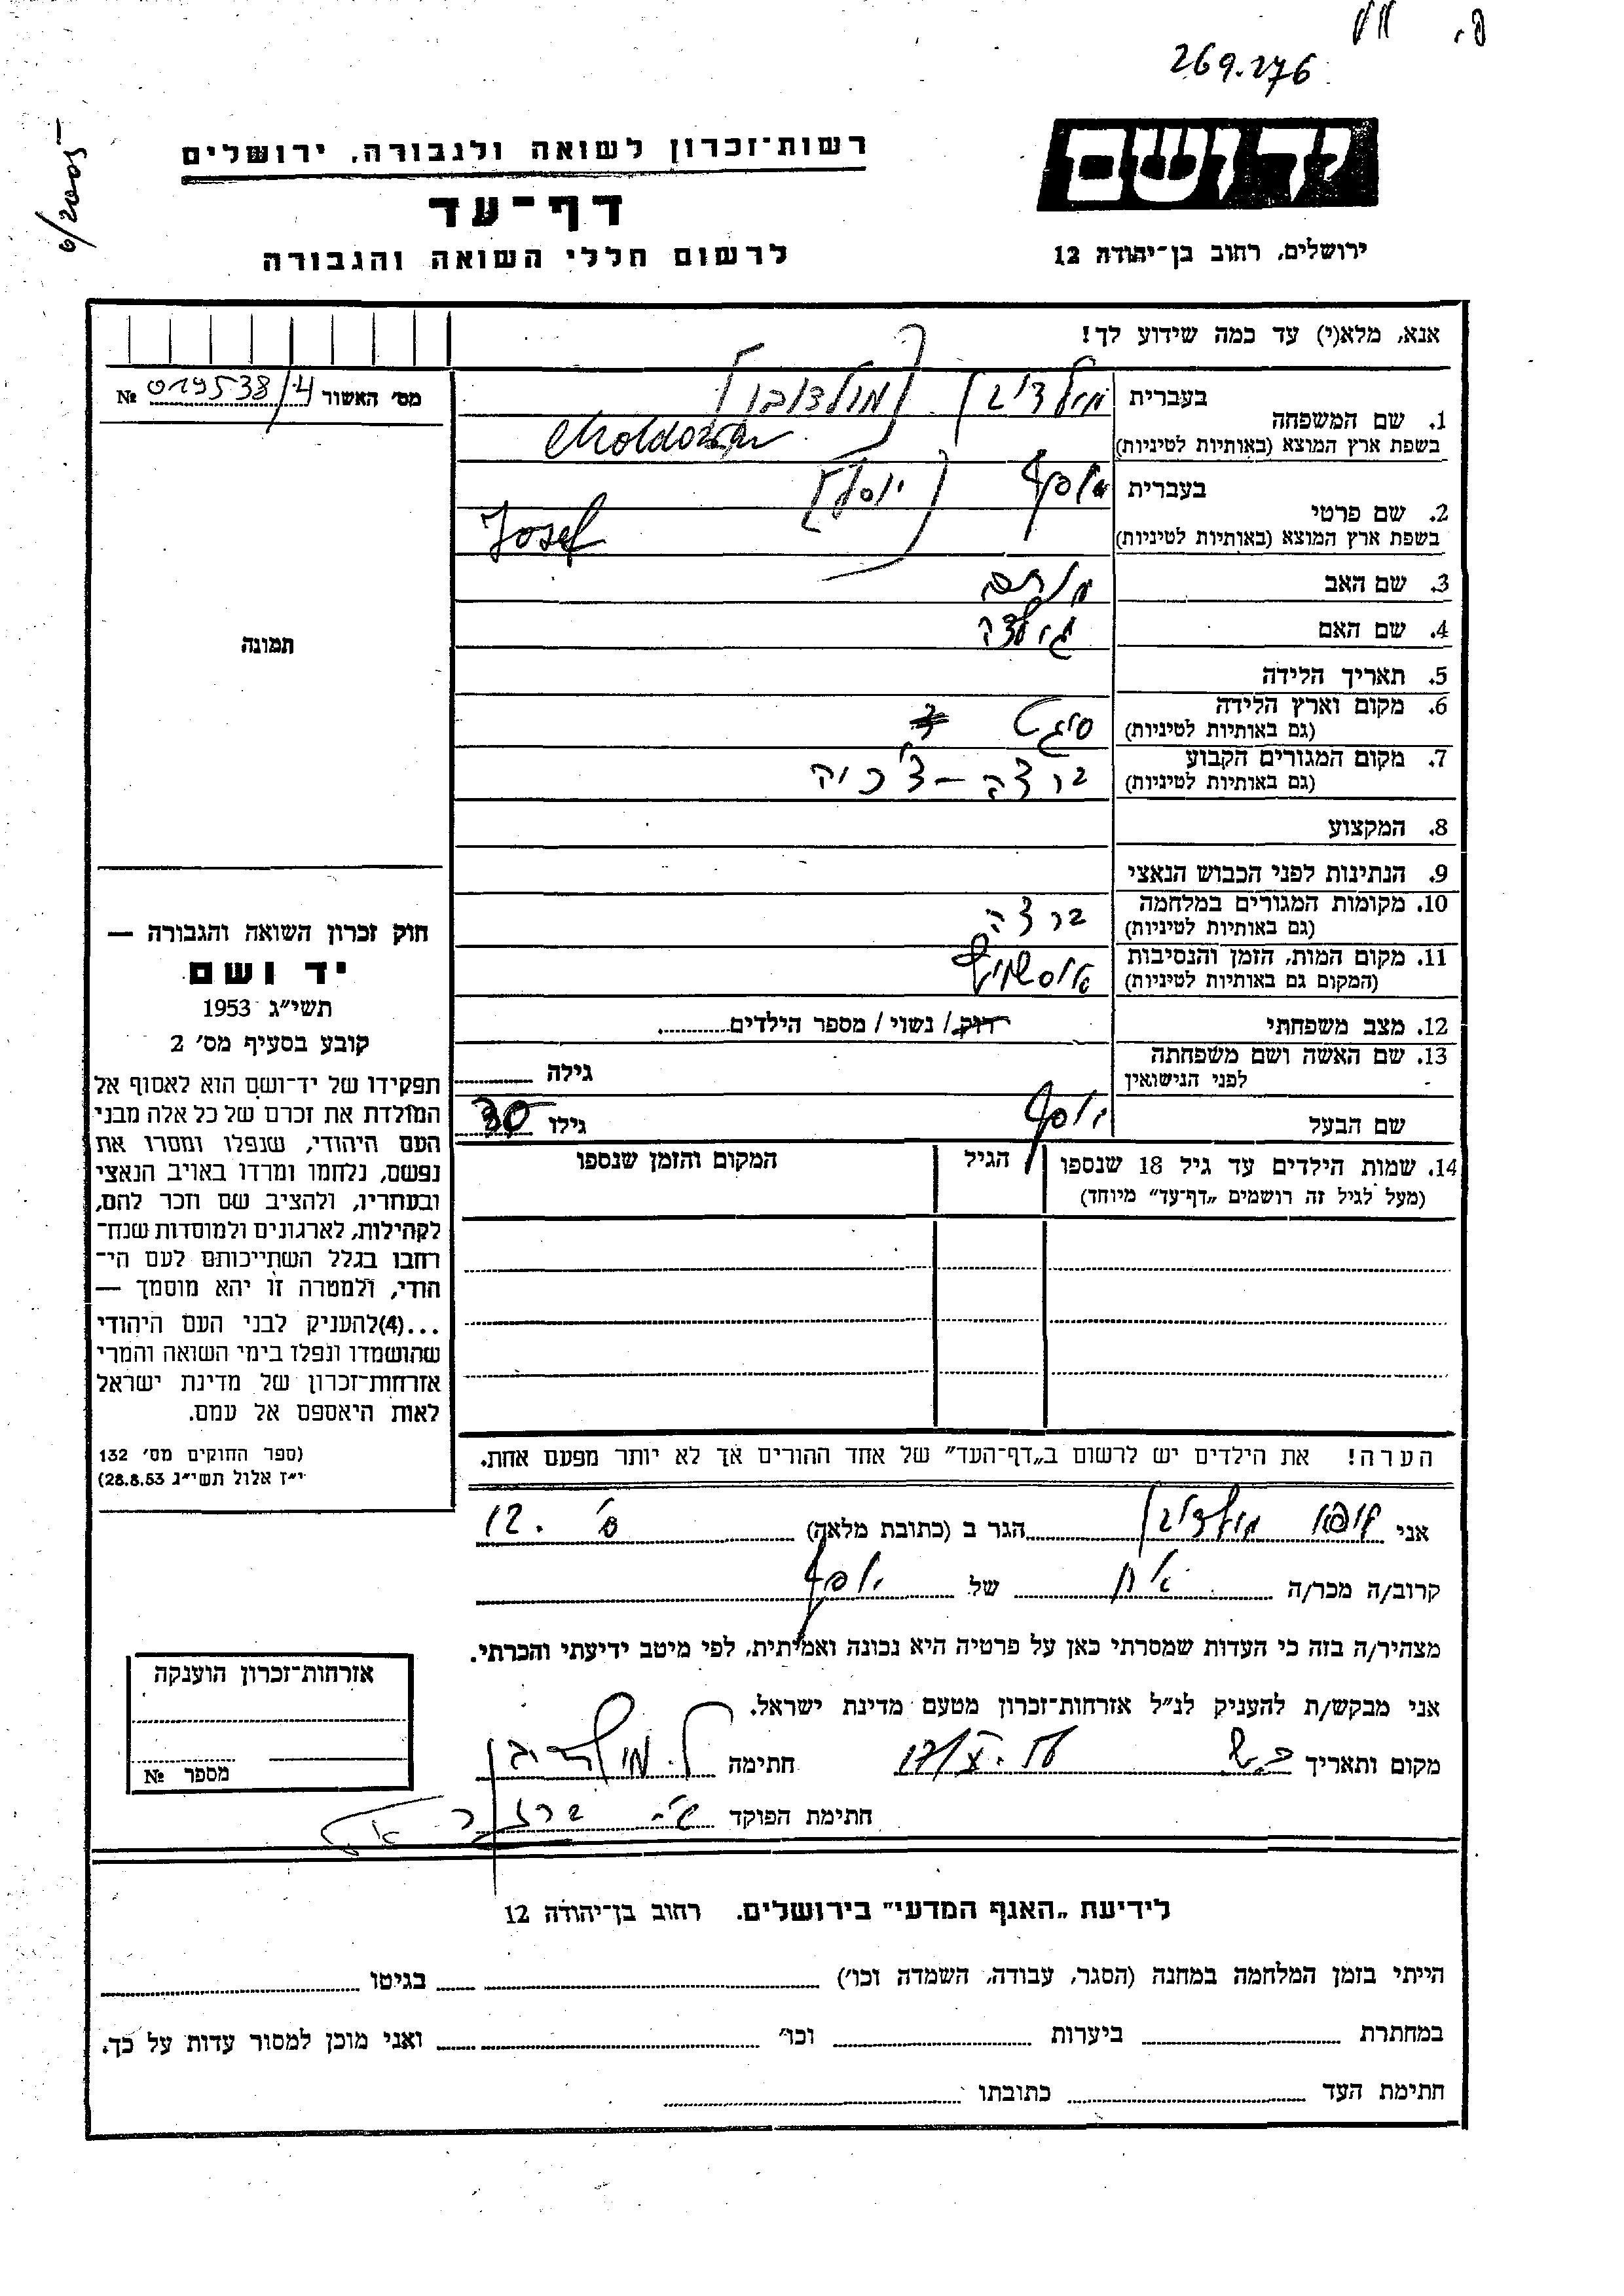 269.276
6/2005
יד ושם
ירושלים, רחוב בן־יהודה 12
רשות־זכרון לשואה ולגבורה, ירושלים
דף־עד
לרשום חללי השואה והגבורה
אנא, מלא(י) עד כמה שידוע לך!
מס׳ האשור № 019538/4
תמונה
1. שם המשפחה
בעברית מולדובן [מולדובן]
בשפת ארץ המוצא (באותיות לטיניות) Moldovan
2. שם פרטי
בעברית יוסף [יוסף]
בשפת ארץ המוצא (באותיות לטיניות) Josef
3. שם האב
4. שם האם גולדה
5. תאריך הלידה
6. מקום וארץ הלידה סיגט
(גם באותיות לטיניות)
7. מקום המגורים הקבוע
(גם באותיות לטיניות)
8. המקצוע
9. הנתינות לפני הכבוש הנאצי
10. מקומות המגורים במלחמה
(גם באותיות לטיניות)
11. מקום המות, הזמן והנסיבות אוסשויץ
(המקום גם באותיות לטיניות)
12. מצב משפחתי רווק / נשוי / מספר הילדים
13. שם האשה ושם משפחתה
לפני הנישואין
גילה
שם הבעל יוסף גילו 30
14. שמות הילדים עד גיל 18 שנספו
(מעל לגיל זה רושמים „דף־עד״ מיוחד)
הגיל
המקום והזמן שנספו
חוק זכרון השואה והגבורה —
יד ושם
תשי״ג 1953
קובע בסעיף מס׳ 2
תפקידו של יד־ושם הוא לאסוף אל
המולדת את זכרם של כל אלה מבני
העם היהודי, שנפלו ומסרו את
נפשם, נלחמו ומרדו באויב הנאצי
ובעוזריו, ולהציב שם וזכר להם,
לקהילות, לארגונים ולמוסדות שנח־
רחבו בגלל השתייכותם לעם הי־
הודי, ולמטרה זו יהא מוסמך —
...(4)להעניק לבני העם היהודי
שהושמדו ונפלו בימי השואה והמרי
אזרחות־זכרון של מדינת ישראל
לאות היאספם אל עמם.
(ספר החוקים מס׳ 132
י״ז אלול תשי״ג 28.8.53)
הערה! את הילדים יש לרשום ב„דף־העד״ של אחד ההורים אך לא יותר מפעם אחת.
אני מולדובן הגר ב (כתובת מלאה) 12
קרוב/ה מכר/ה אח של יוסף
מצהיר/ה בזה כי העדות שמסרתי כאן על פרטיה היא נכונה ואמיתית, לפי מיטב ידיעתי והכרתי.
אני מבקש/ת להעניק לנ״ל אזרחות־זכרון מטעם מדינת ישראל.
מקום ותאריך חתימה מולדובן
חתימת הפוקד
אזרחות־זכרון הוענקה
מספר №
לידיעת „האגף המדעי״ בירושלים, רחוב בן־יהודה 12
הייתי בזמן המלחמה במחנה (הסגר, עבודה, השמדה וכו׳) בגיטו
במחתרת ביערות וכו׳ ואני מוכן למסור עדות על כך.
חתימת העד כתובתו